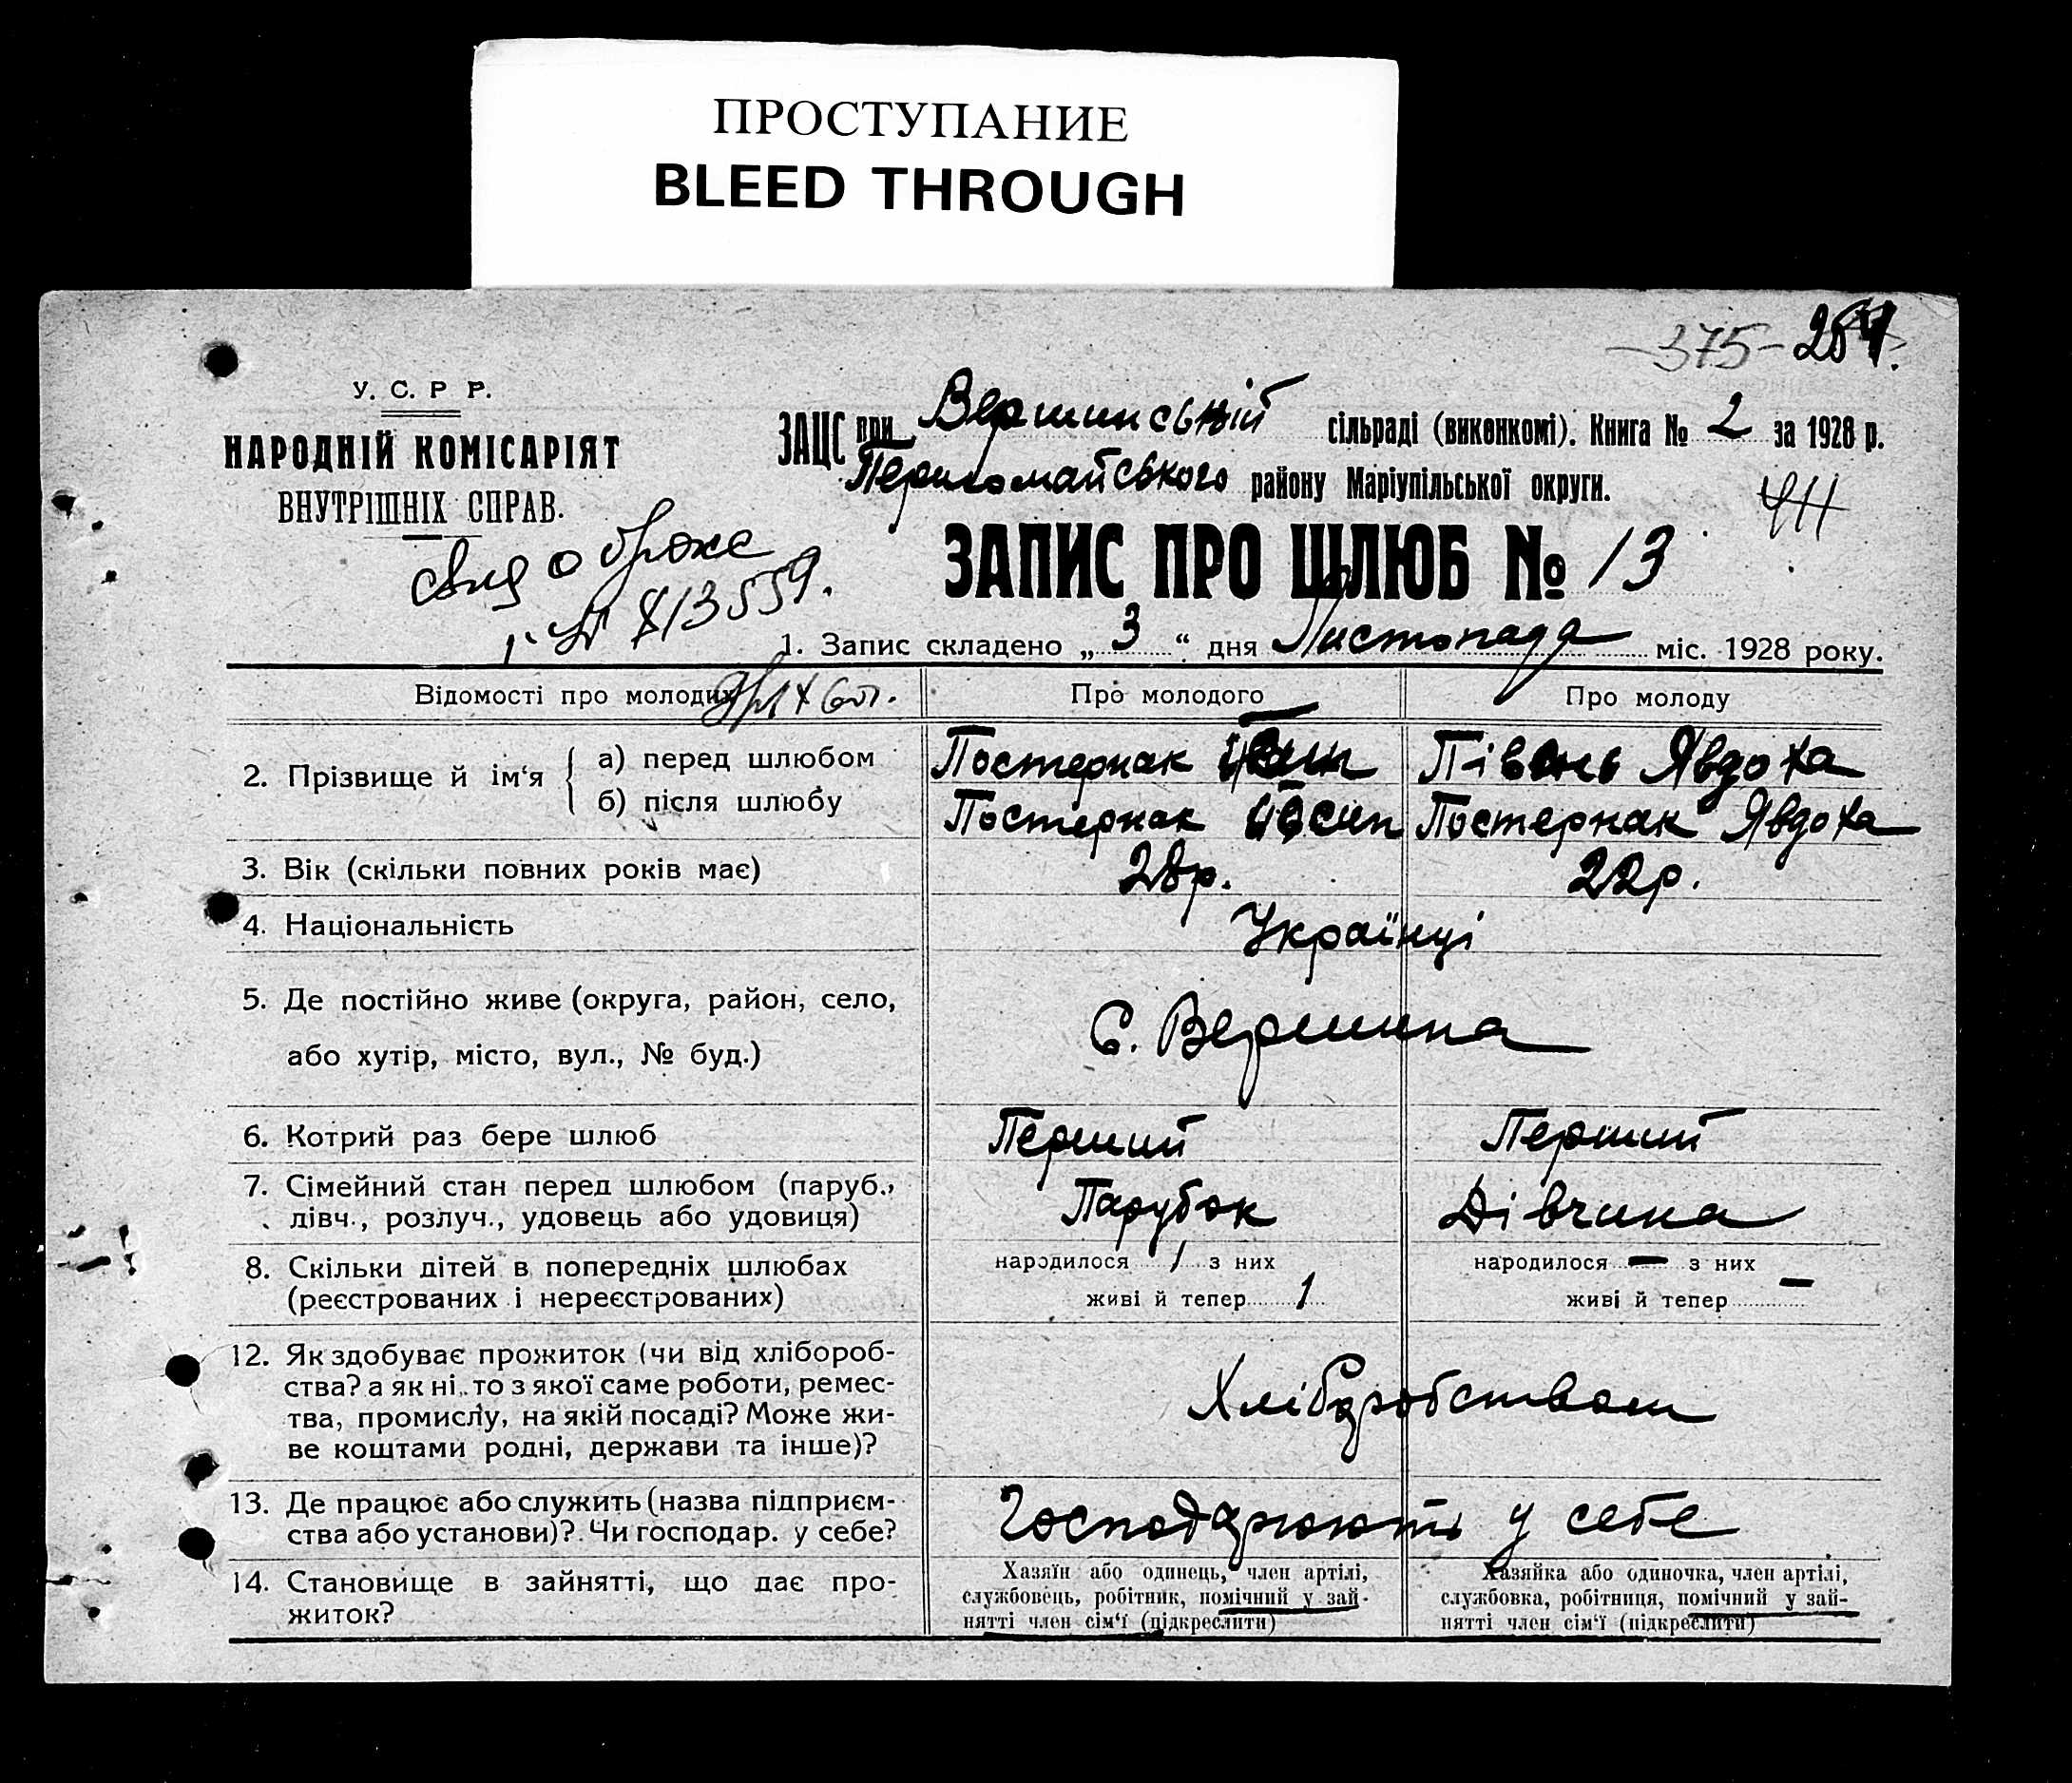 ПРОСТУПАНИЕ
BLEED THROUGH
375 -
У. С. Р Р.
НАРОДНІЙ КОМІСАРІЯТ
ВНУТРІШНІХ СПРАВ.
ЗАЦС при Вершинській сільраді (виконкомі). Книга № 2 за 1928 р.
Першомайського району Маріупільської округи.
ЗАПИС ПРО ШЛЮБ № 13
о браке
813559.
1. Запис складено „ 3 “ дня Листопада міс. 1928 року.
Відомості про молодих Про молодого Про молоду
2. Прізвище й ім‘я а) перед шлюбом Постернак Півень Явдоха
б) після шлюбу Постернак Йосип Постернак Явдоха
3. Вік (скільки повних років має) 28р. 22р.
4. Національність Українці
5. Де постійно живе (округа, район, село, або хутір, місто, вул., № буд.) С. Вершина
6. Котрий раз бере шлюб Перший Перший
7. Сімейний стан перед шлюбом (паруб., дівч., розлуч., удовець або удовиця) Парубок Дівчина
8. Скільки дітей в попередніх шлюбах народилося 1 з них народилося — з них
(реєстрованих і нереєстрованих) живі й тепер 1 живі й тепер —
12. Як здобуває прожиток (чи від хлібороб-
ства? а як ні, то з якої саме роботи, ремес-
тва, промислу, на якій посаді? Може жи-
ве коштами родні, держави та інше)?
Хліборобством
13. Де працює або служить (назва підприєм-
ства або установи)? Чи господар. у себе?
Господарюють у себе
14. Становище в зайнятті, що дає про-
житок?
Хазяїн або одинець, член артілі,
службовець, робітник, помічний у зай-
нятті член сім‘ї (підкреслити)
Хазяйка або одиночка, член артілі,
службовка, робітниця, помічний у зай-
нятті член сім‘ї (підкреслити)